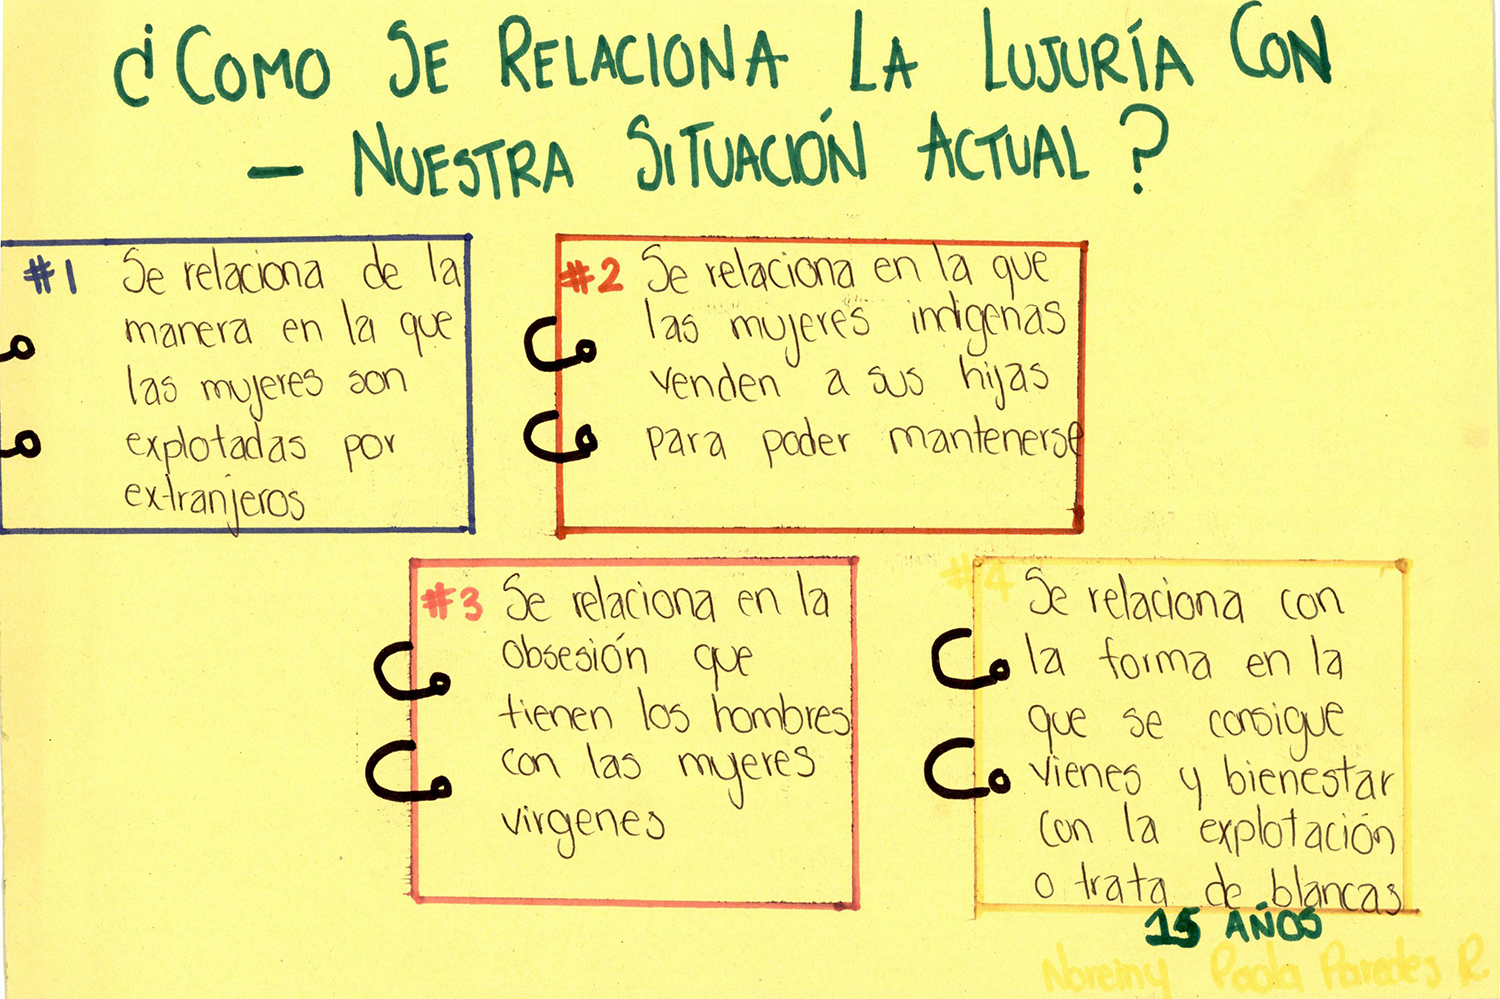 ¿COMO SE RELACIONA LA LUJURÍA CON
- NUESTRA SITUACIÓN ACTUAL?
#1 Se relaciona de la
manera en la que
las mujeres son
explotadas por
extranjeros
#2 Se relaciona en la que
las mujeres indigenas
venden a sus hijas
para poder mantenerse
#3 Se relaciona en la
obsesión que
tienen los hombres
con las mujeres
virgenes
#4 Se relaciona con
la forma en la
que se consigue
vienes y bienestar
con la explotación
o trata de blancas
15 AÑOS
Noreiny Paola Paredes R